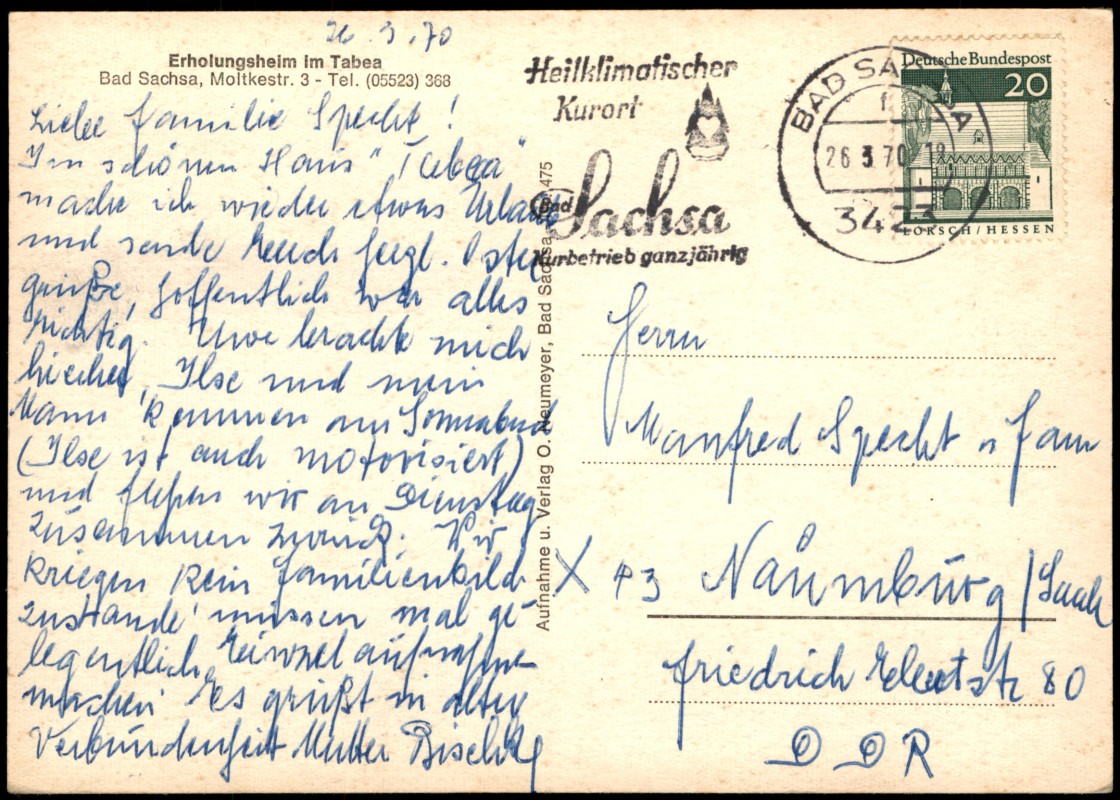 26.3.70
Erholungsheim im Tabea
Bad Sachsa, Moltkestr. 3 - Tel. (05523) 368
Liebe Familie Specht!
Im schönen Haus "Tabea"
mache ich wieder etwas Urlaub
und sende Euch herzl. Oster
grüße, hoffentlich war alles
richtig. Uwe brachte mich
hierher, Ilse und mein
Mann kommen am Sonnabend
(Ilse ist auch motorisiert)
und fahren wir am Dienstag
zusammen zurück. Wir
kriegen kein Familienbild
zustande müssen mal ge
legentlich Einzelaufnahme
machen Es grüßt in alter
Verbundenheit Mutter
Heilklimatischer
Kurort
Bad Sachsa
Kurbetrieb ganzjährig
BAD SACHSA
f
26.3.70-18
3423
Deutsche Bundespost
20
LORSCH/HESSEN
Aufnahme u. Verlag O. Neumeyer, Bad Sachsa 475
Herrn
Manfred Specht u Fam
X 43 Naumburg/Saale
Friedrich Ebertstr 80
DDR